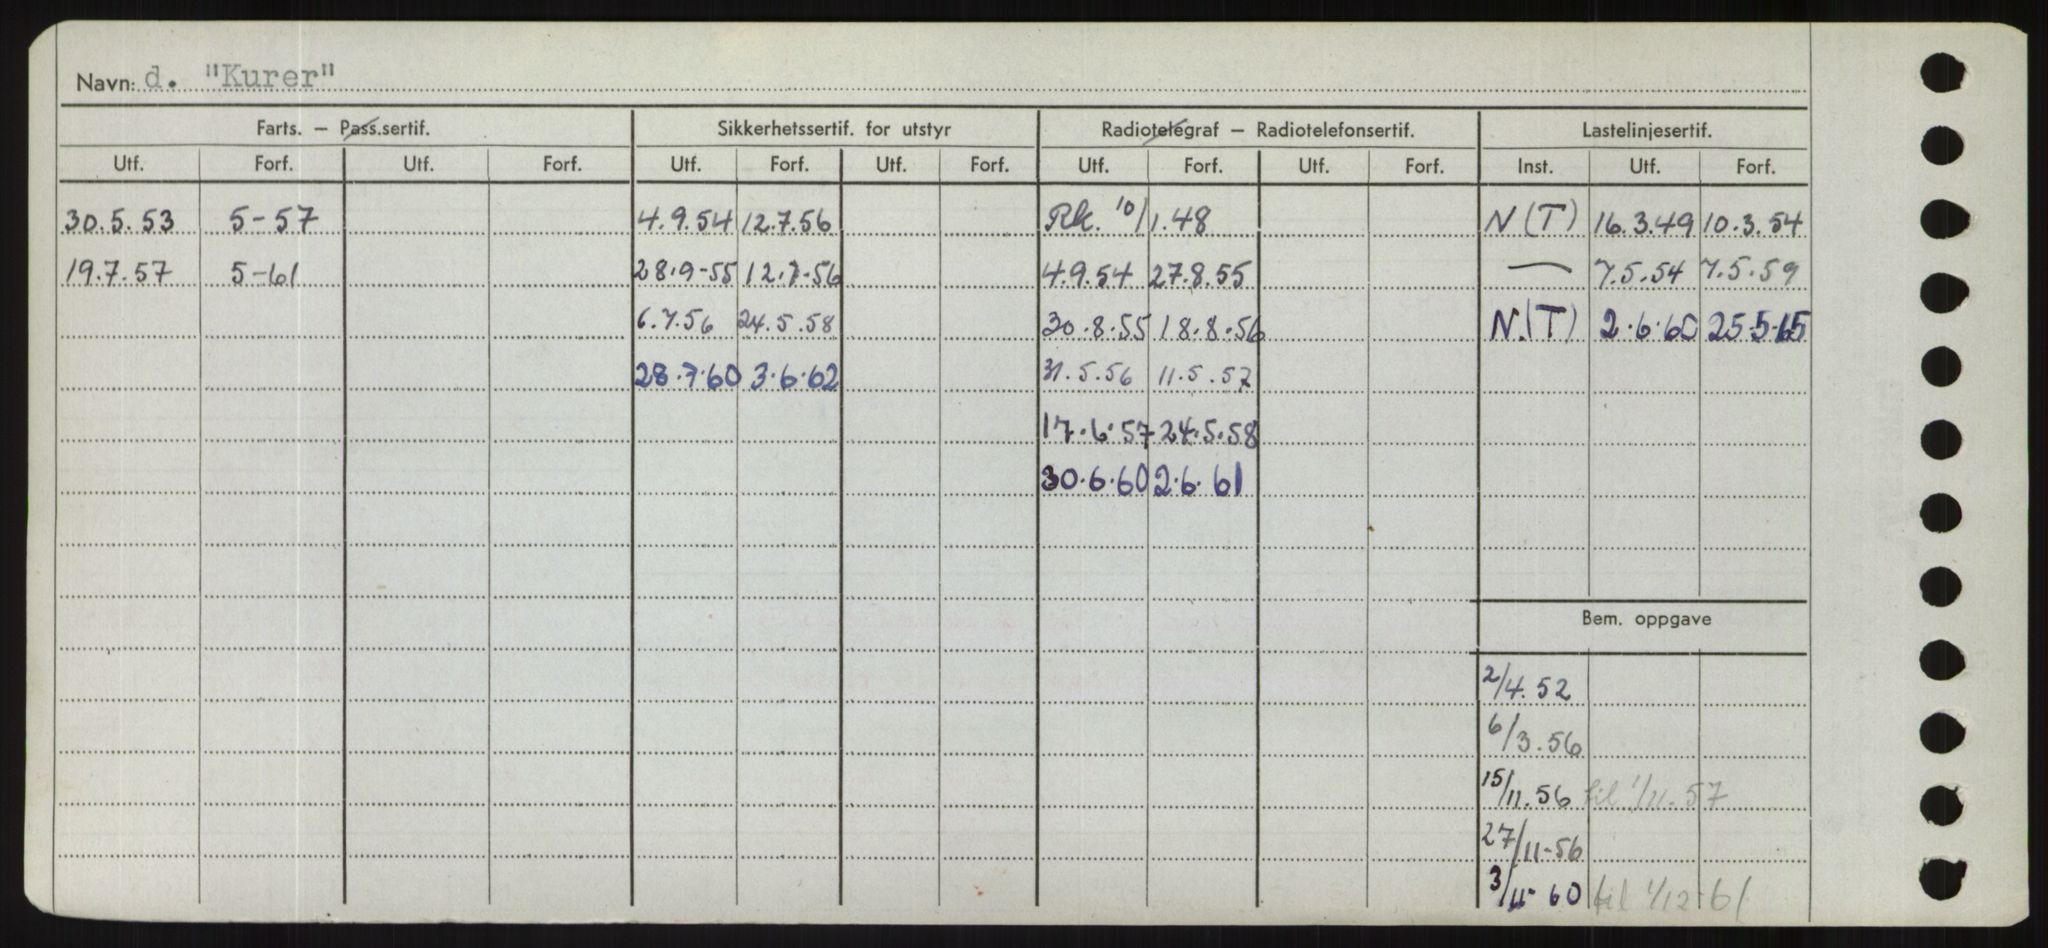 Navn: d. "Kurer"
Farts. – Pass.sertif. Sikkerhetssertif. for utstyr Radiotelegraf – Radiotelefonsertif. Lastelinjesertif.
Utf. Forf. Utf. Forf. Utf. Forf. Utf. Forf. Utf. Forf. Utf. Forf. Inst. Utf. Forf.
30.5.53 5-57 4.9.54 12.7.56 Rk. 10/1.48 N(T) 16.3.49 10.3.54
19.7.57 5-61 28.9-55 12.7-56 4.9.54 27.8.55 — 7.5.54 7.5.59
6.7.56 24.5.58 30.8.55 18.8.56 N.(T) 2.6.60 25.5.65
28.7.60 3.6.62 31.5.56 11.5.57
17.6.57 24.5.58
30.6.60 2.6.61
Bem. oppgave
2/4.52
6/3.56
15/11.56 til 1/11.57
27/11-56
3/11-60 til 1/12-61